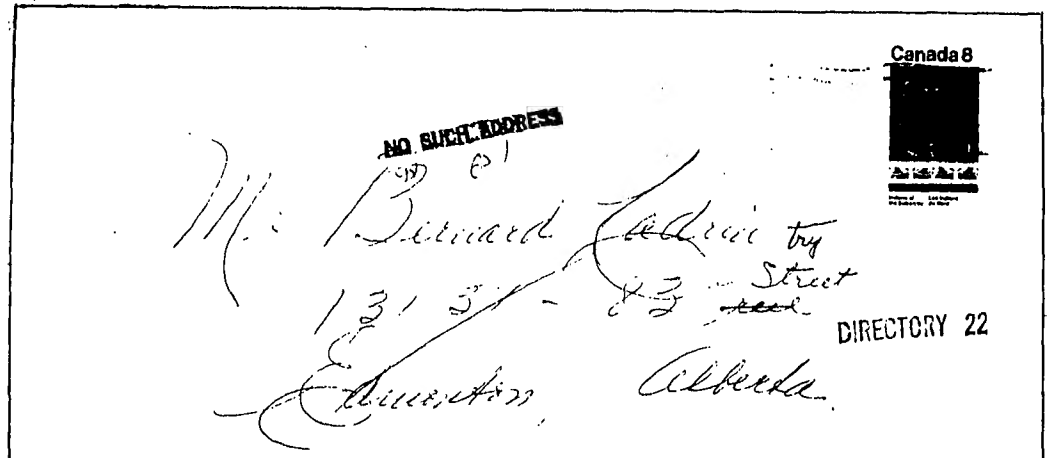 Canada 8
NO SUCH ADDRESS
Mr. Bernard Ladrie try
131 31 - 83 Street
DIRECTORY 22
Edmonton, Alberta.